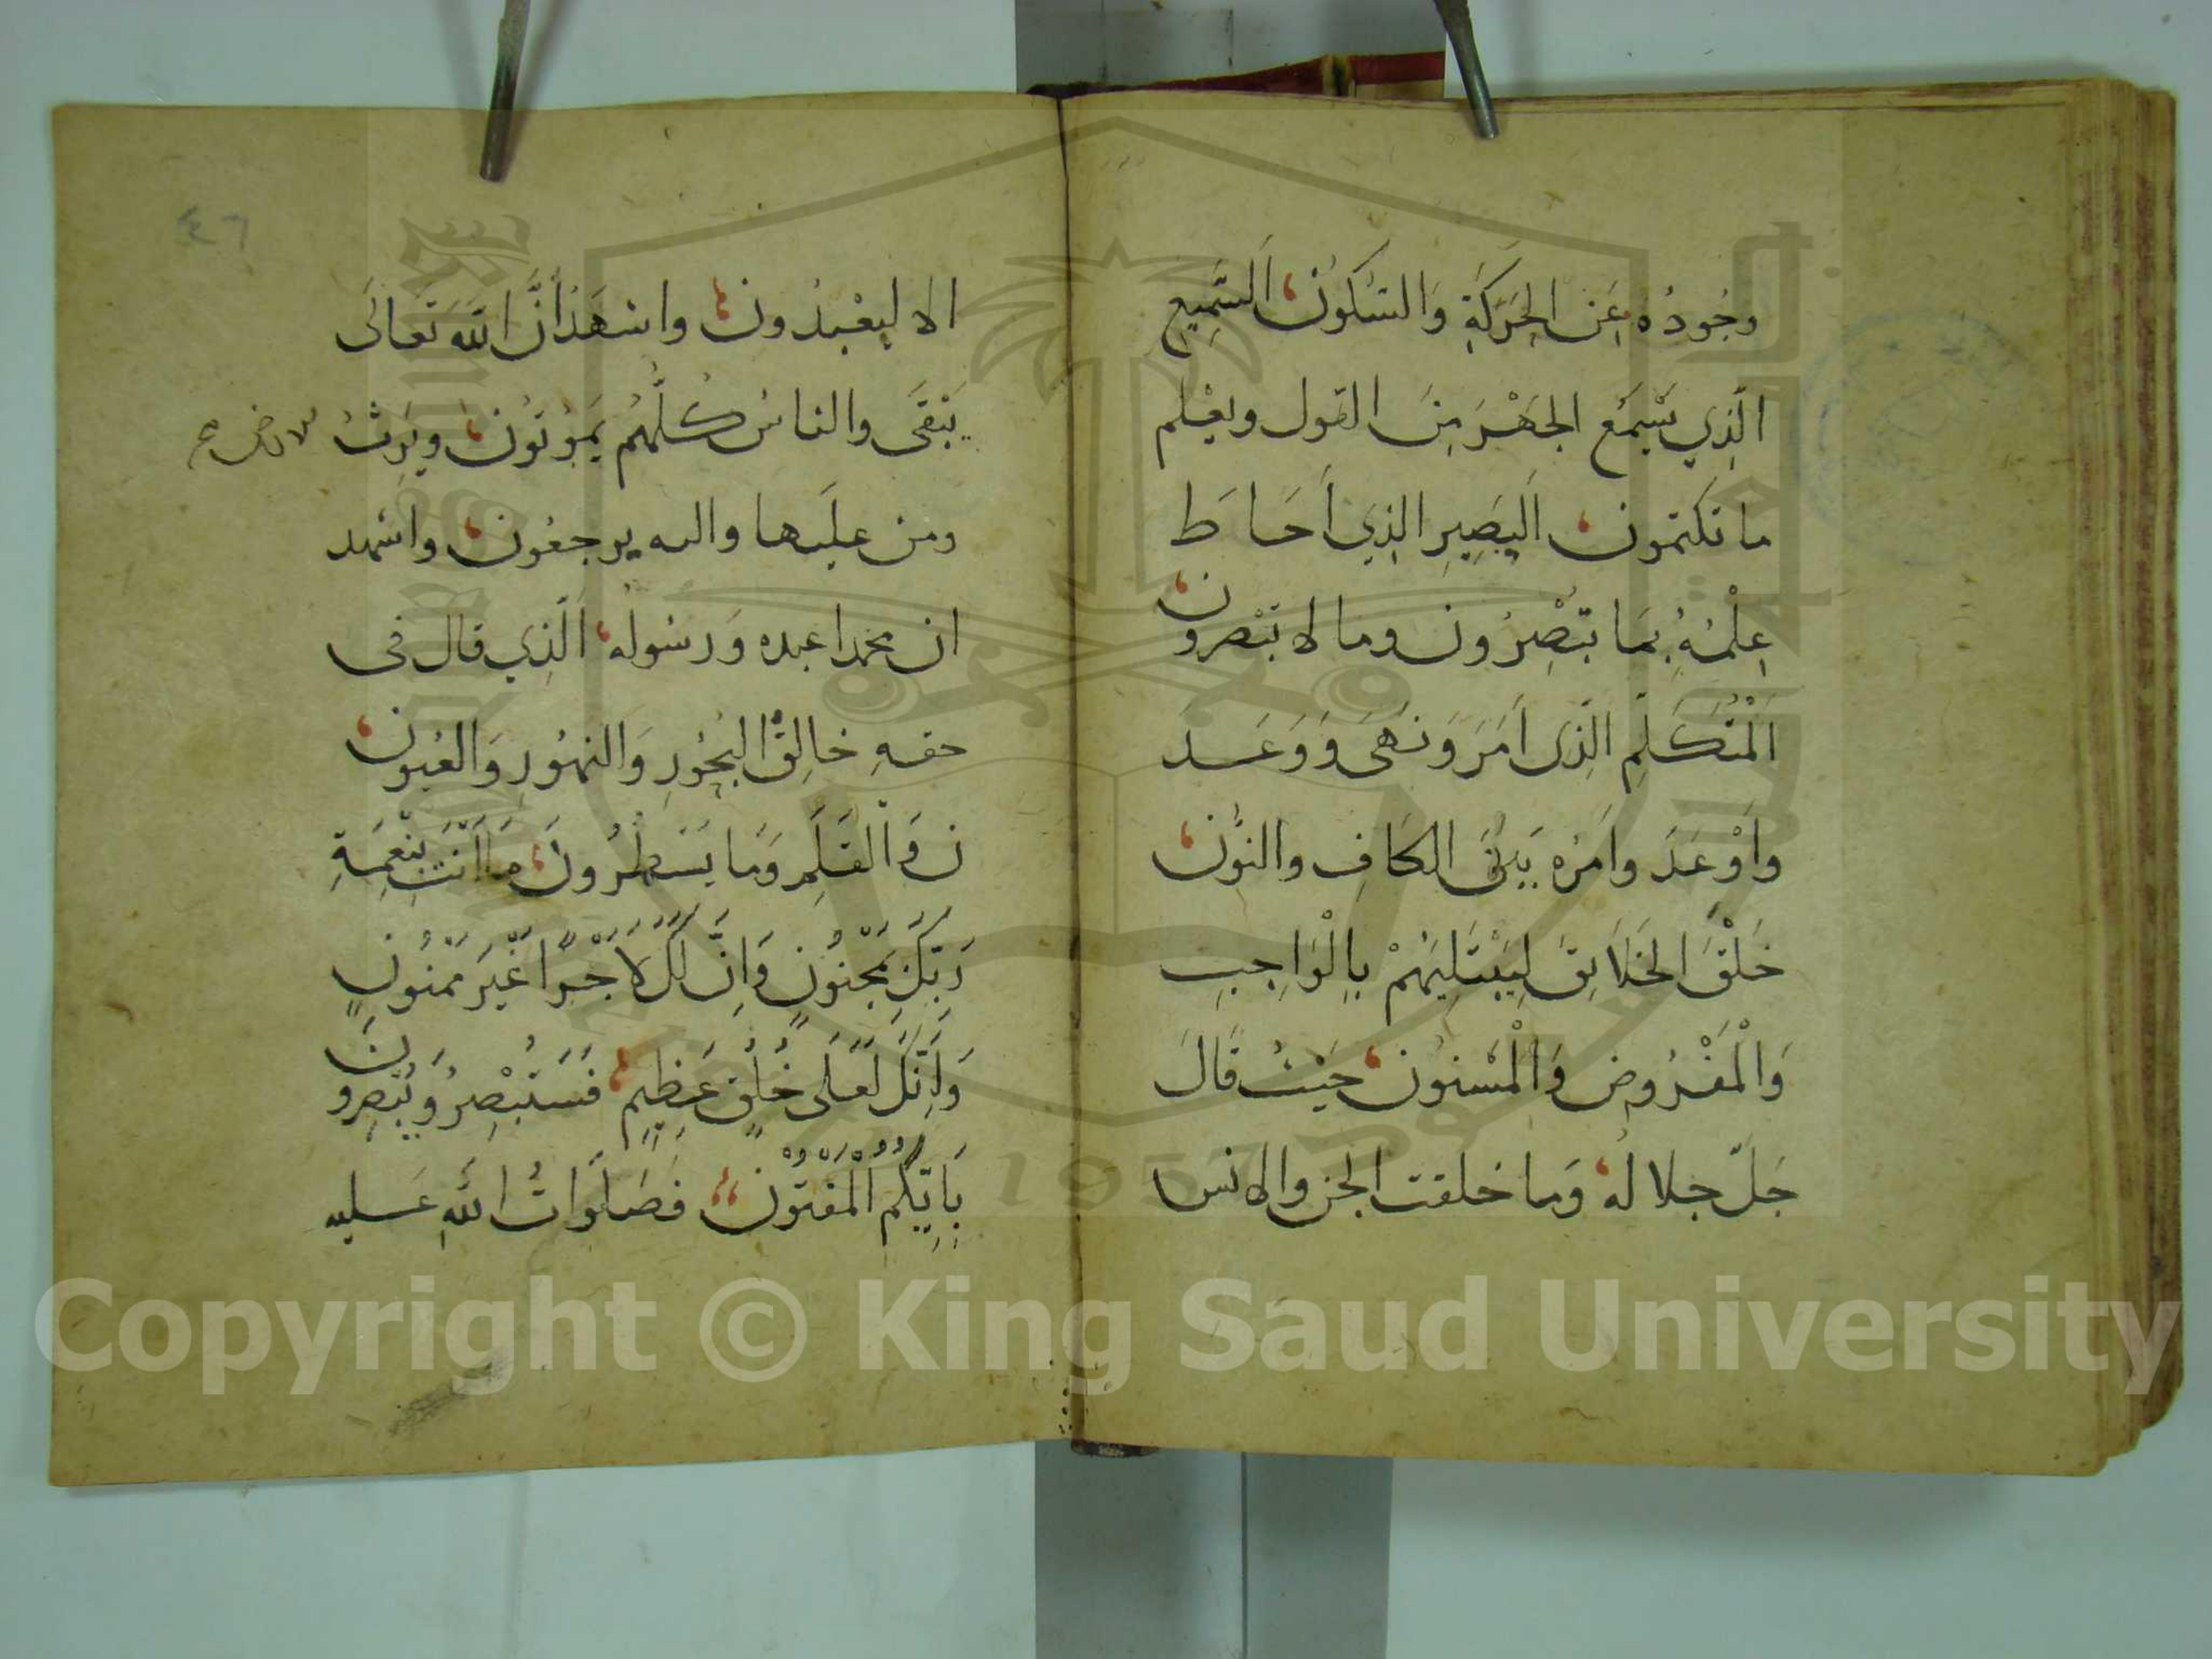 وجُودُه عَن الحَرَكَةِ وَالسُّكون، اَلسَّمِيعِ
الَّذِي يَسْمَع الجَهْرَ مِنَ القول ويعْلم
ما تكتمون، اَلبَصِيرِ الذِي اَحَاطَ
عِلْمُهُ بمَا تبْصِرُون وما لا تبْصرون،
اَلْمُتَكَلِّمِ الَّذِى اَمَرَ وَنَهَى وَوَعَدَ
وَاَوْعَدَ وامرُه بَيْنَ الكَافِ والنُّون،
خَلْقَ الخَلَائِقَ لِيَبْتَلِيَهُمْ بِالْوَاجِبِ
وَالْمَفْرُوضِ وَالْمَسْنُون، حَيْثُ قَالَ
جَلَّ جلالهُ، وَما خلقت الجن والانس
الا ليعْبدُون، واشهَدُ اَنَّ اللّه تَعَالَى
يَبْقَى والناسُ كُلّهُم يَمُوتُون، ويَرِثُ الارض صح
ومن علَيها واليه يرجعُون، واشهد
ان محمدا عبده وَرسُولهُ، الَّذِي قال فى
حقهِ خالِقُ البُحُورِ وَالنهُورِ وَالعُيون،
ن وَالْقَلَمِ وَمَا يَسْطُرُونَ، مَا اَنْتَ بِنِعْمَةِ
رَبِّكَ بِمَجْنُونٍ وَاِنَّ لَكَ لَاَجْرًا غَيْرَ مَمْنُونٍ
وَاِنَّكَ لَعَلَى خُلُقٍ عَظِيمٍ، فَسَتُبْصِرُ وَيُبْصِرُونَ
بِاَيِّكُمُ الْمَفْتُوْن، فَصَلَوَاتُ اللّهِ عَليه
٤٦
Copyright © King Saud University
1957